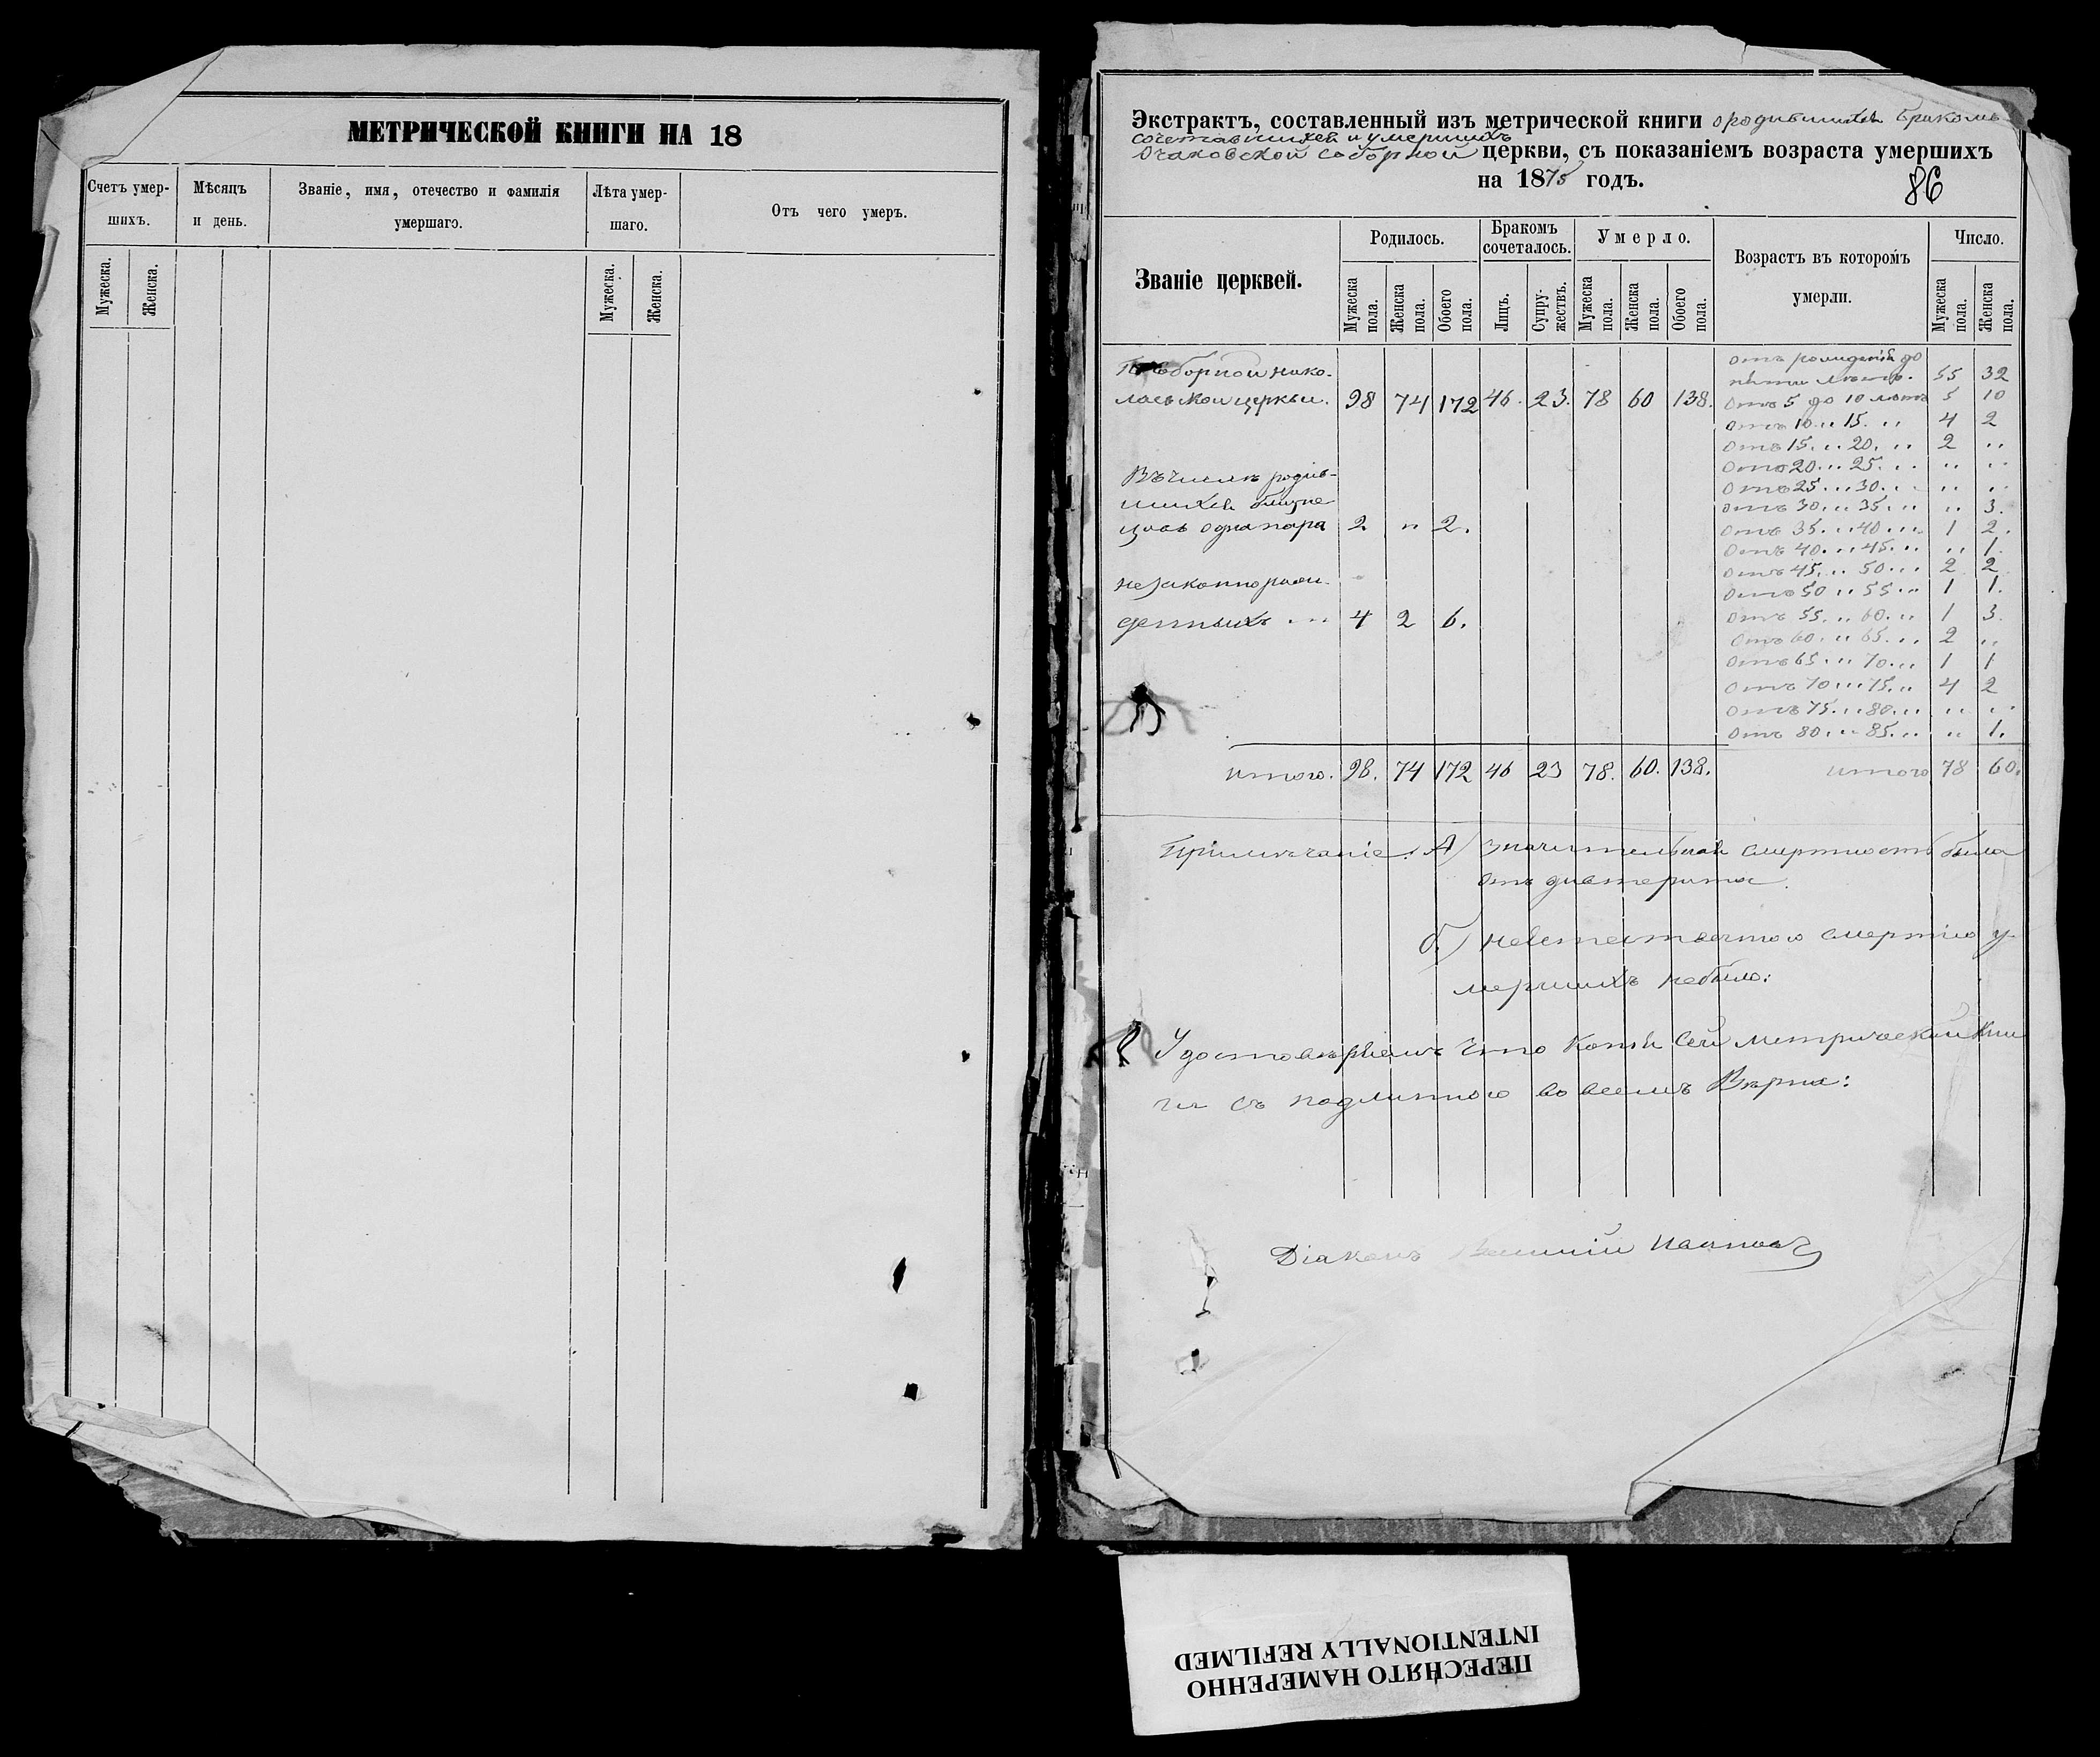 МЕТРИЧЕСКОЙ КНИГИ НА 18
Счетъ умер-
шихъ.
Мѣсяцъ
и день.
Званіе, имя, отечество и фамилія
умершаго.
Лѣта умер-
шаго.
Отъ чего умеръ.
Мужеска.
Женска.
Мужеска.
Женска.
Экстрактъ, составленный изъ метрической книги о родившихся бракомъ
сочетавшихся и умершихъ
Очаковской соборной церкви, съ показаніемъ возраста умершихъ
на 1875 годъ.
86
Званіе церквей.
Родилось.
Бракомъ
сочеталось.
Умерло.
Возрастъ въ которомъ
умерли.
Число.
Мужеска пола.
Женска пола.
Обоего пола.
Лицъ.
Супру-жествъ.
Мужеска пола.
Женска пола.
Обоего пола.
Мужеска пола.
Женска пола.
соборной Нико-
лаевской церкви. 98 74 172 46. 23. 78 60 138.
отъ рожденія до
пяти лѣтъ. 55 32
Отъ 5 до 10 лѣтъ 5 10
Отъ 10 „ 15. „ 4 2
Отъ 15. „ 20. „ 2 „
Отъ 20. „ 25. „ „ „
Отъ 25 „ 30. „ „ „
Отъ 30 „ 35 „ „ 3.
Отъ 35. „ 40 „ 1 2.
Отъ 40. „ 45. „ „ 1.
Отъ 45. „ 50. „ 2 2
Отъ 50 „ 55 „ 1 1.
Отъ 55. „ 60. „ 1 3.
Отъ 60. „ 65. „ 2 „
Отъ 65. „ 70. „ 1 1
Отъ 70 „ 75. „ 4 2
Отъ 75. „ 80. „ „ „
Отъ 80. „ 85. „ „ 1.
Въ числѣ родив-
шихся близне
цовъ одна пара 2. „ 2.
незаконнорож-
денныхъ „ 4 2 6.
итого. 98. 74 172 46 23 78. 60. 138. итого 78 60.
Примѣчаніе: А) Значительная смертность была
отъ дифтерита.
б) неестественною смертію у-
мершихъ небыло:
Удостовѣряемъ что копія сей метрической кни
ги съ подлинною во всемъ Вѣрна:
Діаконъ
ПЕРЕСНЯТО НАМЕРЕННО
INTENTIONALLY REFILMED